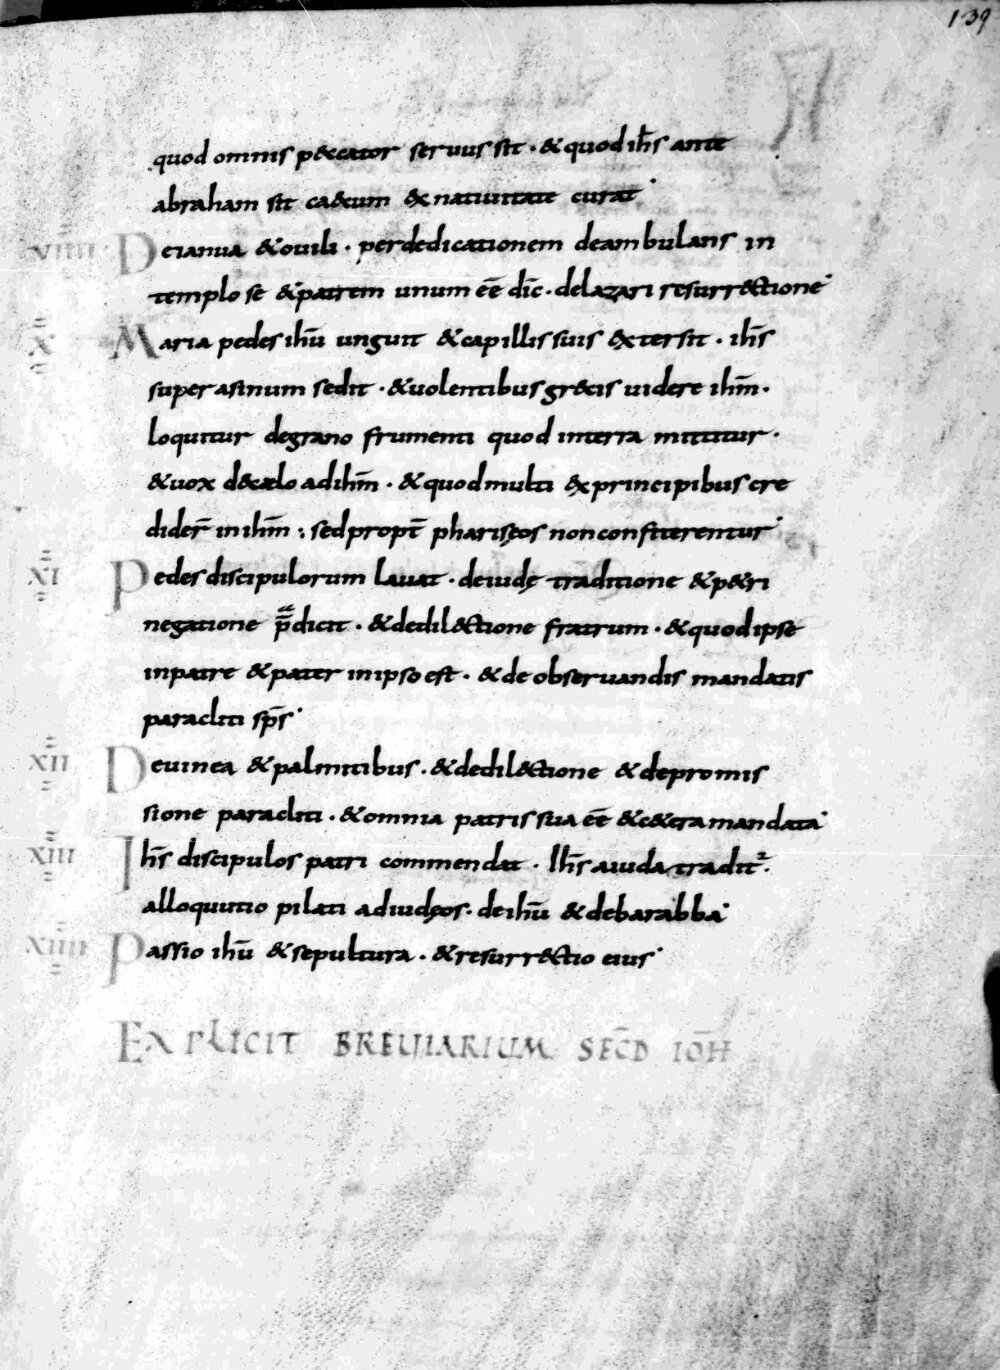 139
quod omnis p&cator seruus sit · & quod ih̅s ante
abraham sit ca&cum & natiuitate curat
VIIII De ianua & ouili · per dedicationem deambulans in
templo se & patrem unum ee̅ dic̅ · de lazari resurr&ctione
X Maria pedes ihu̅ unguit & capillis suis extersit · ih̅s
super asinum sedit · & uolentibus gr&cis uidere ihm̅ ·
loquitur de grano frumenti quod in terra mittitur ·
& uox de cælo ad ihm̅ · & quod multi ex principibus cre
dider̅ in ihm̅ : sed propt̅ pharisęos non confiterentur
XI Pedes discipulorum lauat · de iudę traditione & p&ri
negatione p̅dicit · & de dil&ctione fratrum · & quod ipse
in patre & pater in ipso est · & de obseruandis mandatis
paracliti sp̅s
XII De uinea & palmitibus · & de dil&ctione & de promis
sione paracliti · & omnia patris sua ee̅ & c&era mandata
XIII Ih̅s discipulos patri commendat · Ih̅s a iuda tradit² ·
alloquutio pilati ad iudęos · de ihu̅ & de barabba
XIIII Passio ihu̅ & sepultura · & resurr&ctio eius
EXPLICIT BREUIARIUM SEC̅D IOH̅